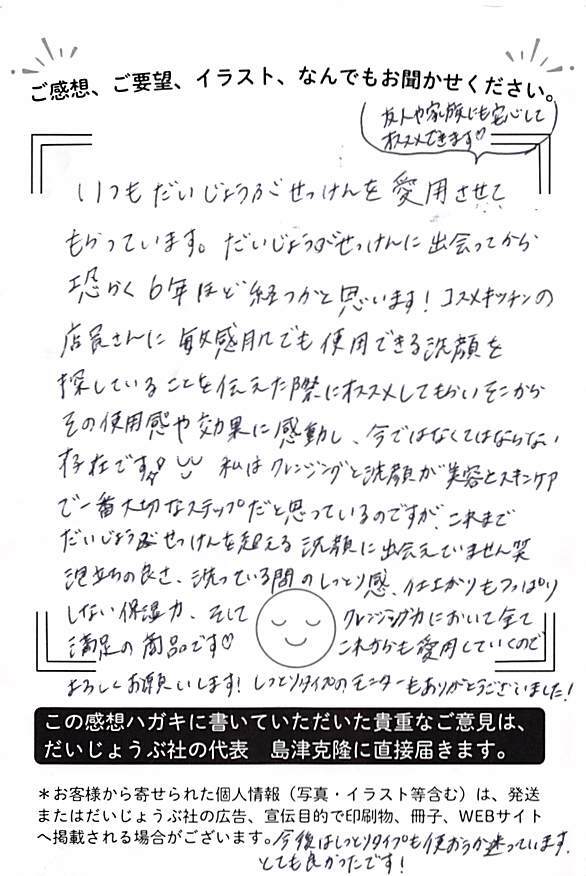 ご感想、ご要望、イラスト、なんでもお聞かせください。
友人や家族にも安心して
オススメできます♡
いつもだいじょうぶせっけんを愛用させて
もらっています。だいじょうぶせっけんに出会ってから
恐らく6年ほど経つかと思います！コスメキッチンの
店員さんに敏感肌でも使用できる洗顔を
探していることを伝えた際にオススメしてもらいそこから
その使用感や効果に感動し、今ではなくてはならない
存在です。私はクレンジングと洗顔が美容とスキンケア
で一番大切なステップだと思っているのですが、これまで
だいじょうぶせっけんを超える洗顔に出会えていません笑
泡立ちの良さ、洗っている間のしっとり感、仕上がりもつっぱり
しない保湿力、そして クレンジング力において全て
満足の商品です♡ これからも愛用していくので
よろしくお願いします！しっとりタイプのモニターもありがとうございました！
この感想ハガキに書いていただいた貴重なご意見は、
だいじょうぶ社の代表　島津克隆に直接届きます。
＊お客様から寄せられた個人情報（写真・イラスト等含む）は、発送
またはだいじょうぶ社の広告、宣伝目的で印刷物、冊子、WEBサイト
へ掲載される場合がございます。
今後はしっとりタイプも使おうか迷っています。
とても良かったです！